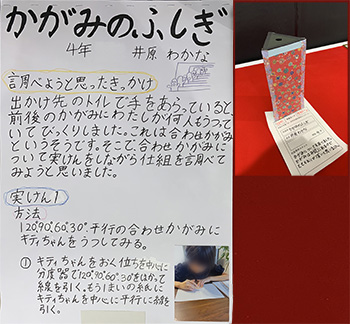 かがみのふしぎ
4年 井原 わかな
調べようと思ったきっかけ
出かけ先のトイレで手をあらっていると、
前後のかがみにわたしが何人もうつって
いてびっくりしました。これは合わせかがみ
というそうです。そこで、合わせかがみに
ついて実けんをしながら仕組を調べて
みようと思いました。
実けん1
方法
120°、90°、60°、30°、平行の合わせかがみに
キティちゃんをうつしてみる。
① キティちゃんをおく位ちを中心に
分度器で120°、90°、60°、30°をはかって
線を引く。もう1まいの紙に
キティちゃんを中心に平行に線を
引く。